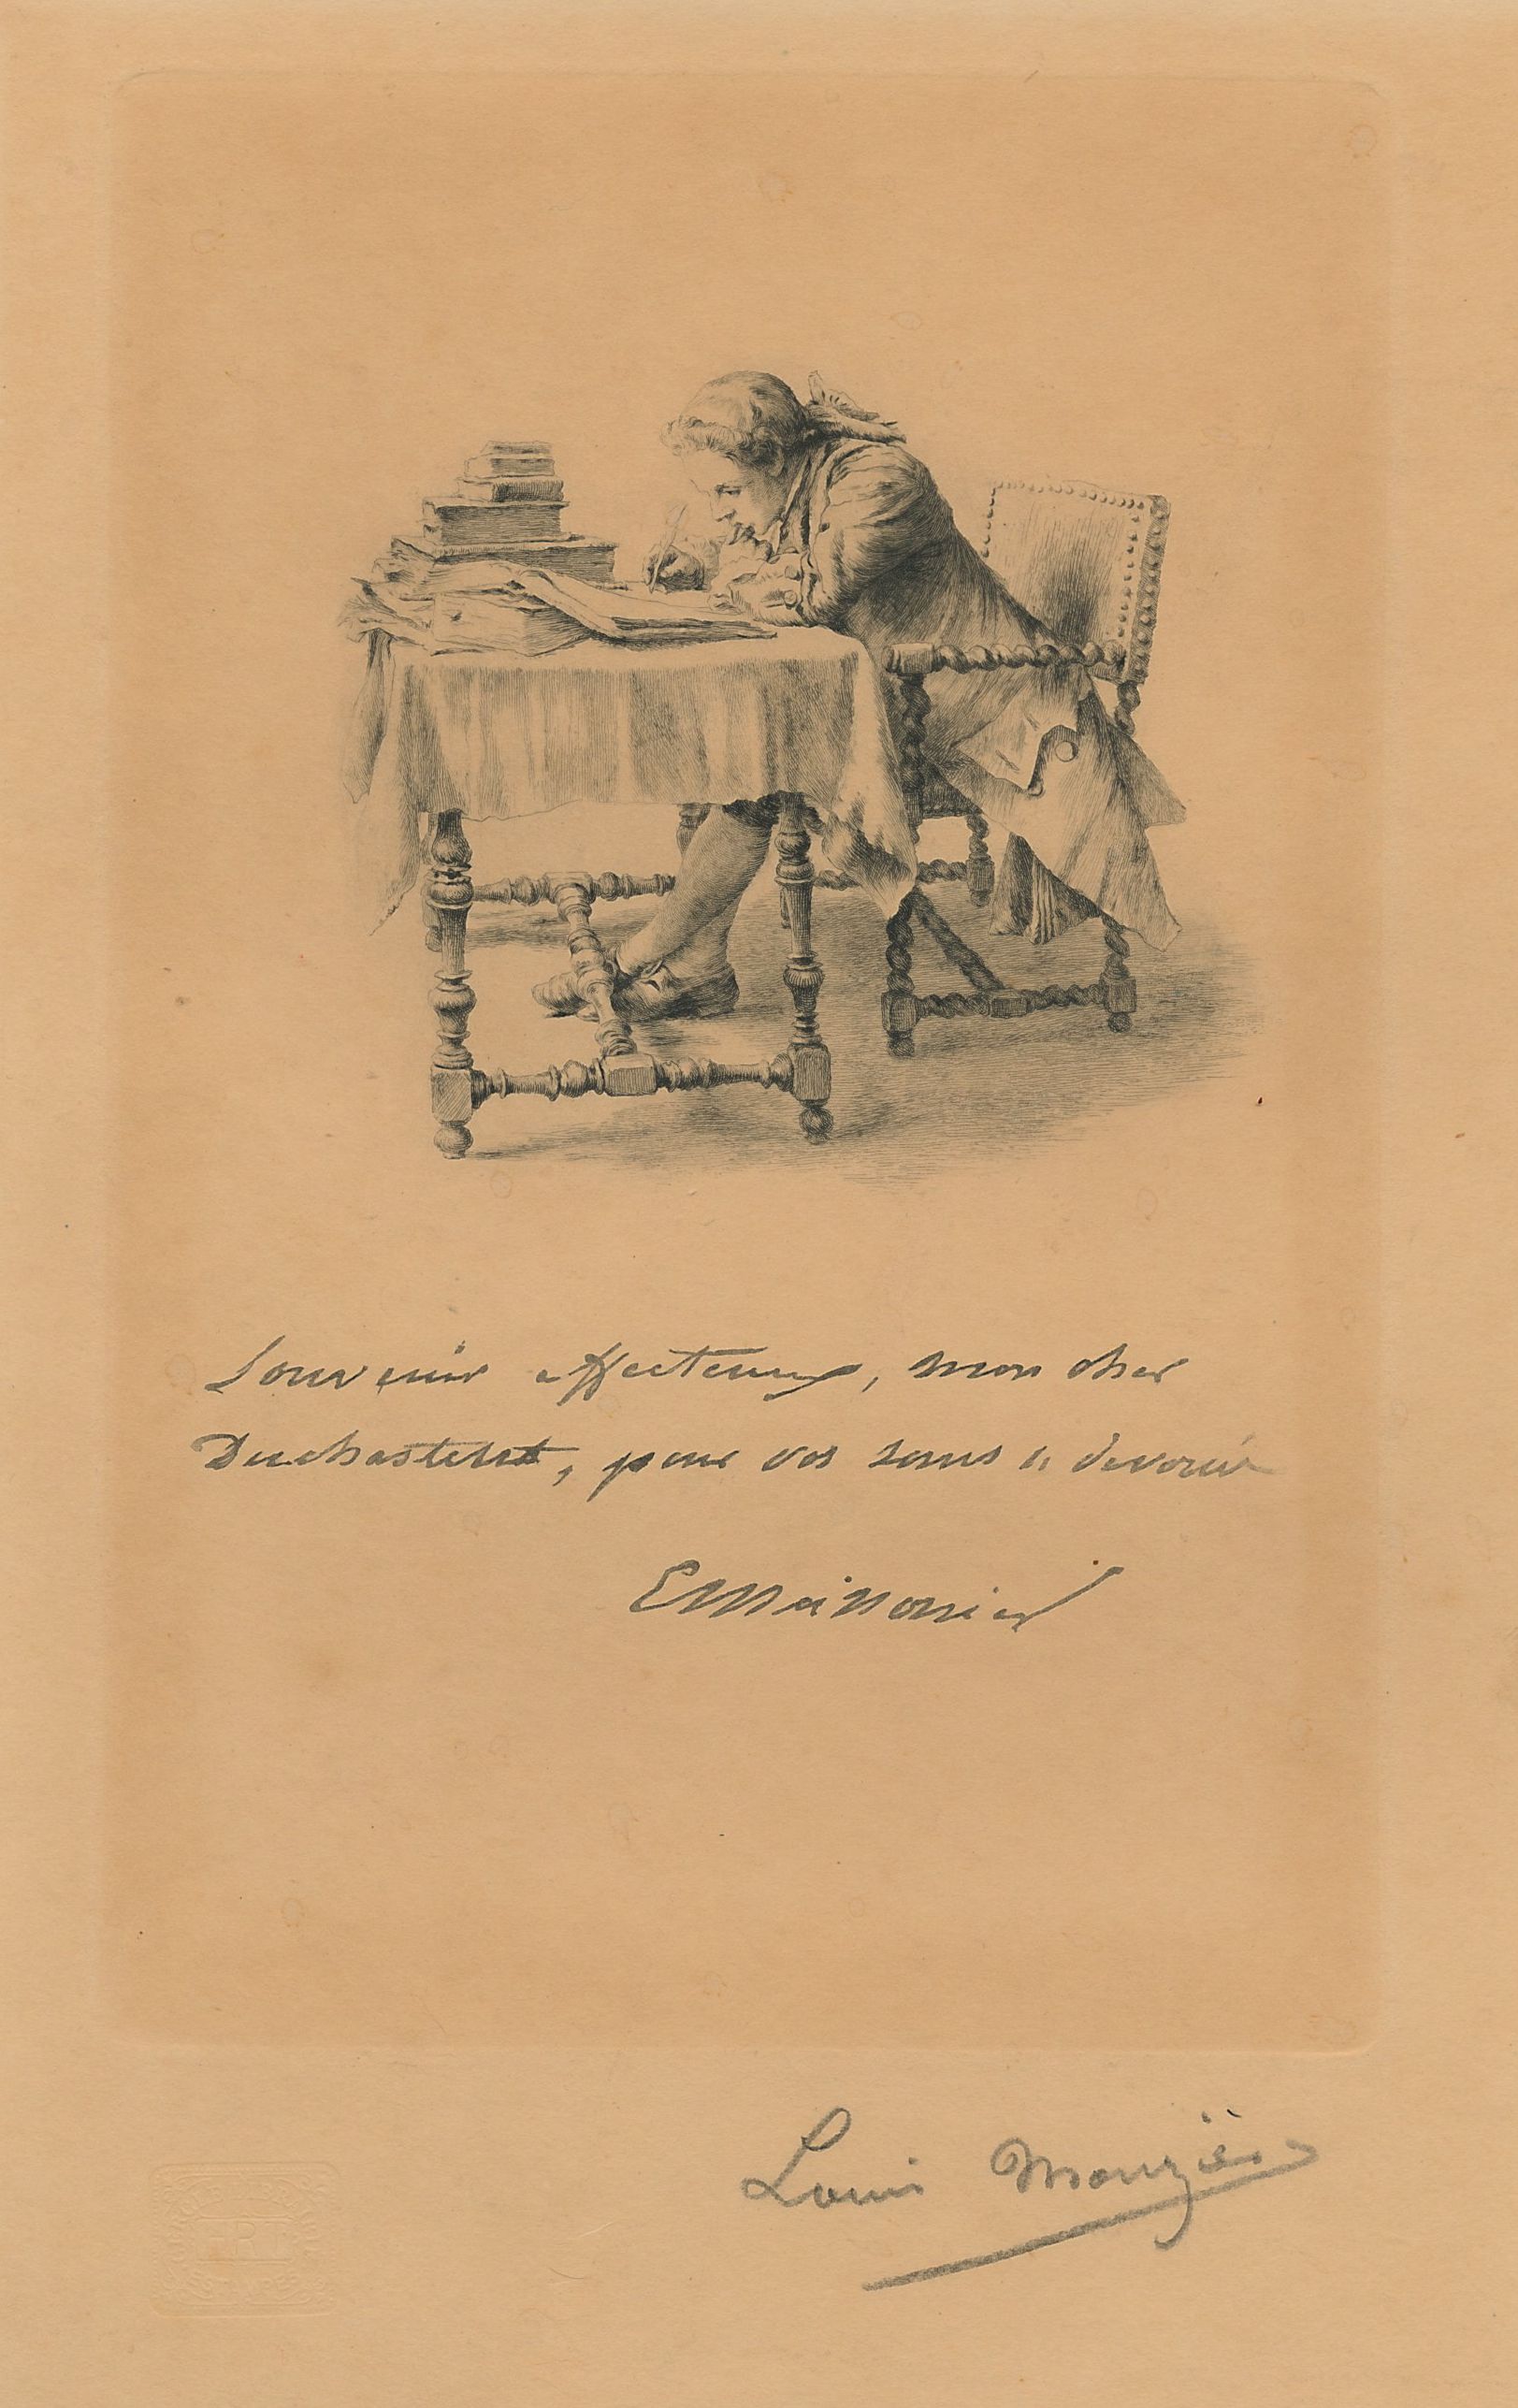 Souvenir affectueux, mon cher
Duchastelet, pour vos soins si dévoués
EMeissonier
Louis Monziès
ART